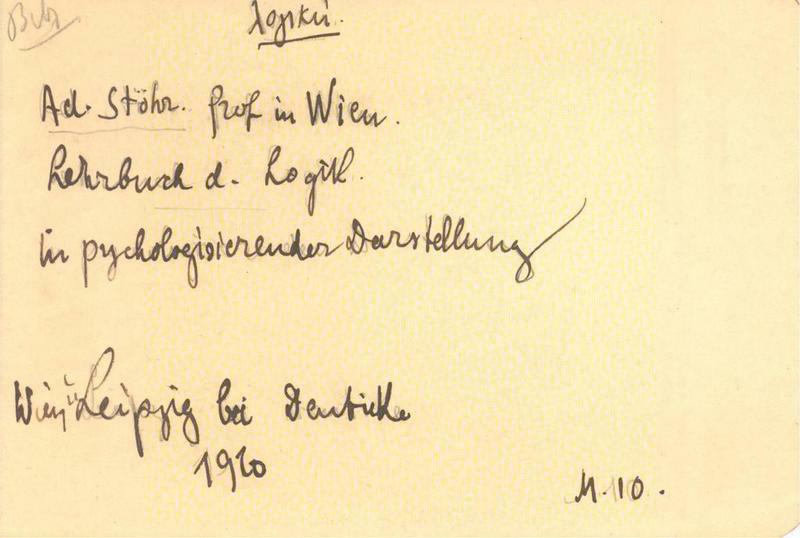 Bibl
λογική.
Ad. Stöhr. Prof in Wien.
Lehrbuch d. Logik.
in psychologisierender Darstellung
Wien u Leipzig bei Deuticke
1910
M. 10.